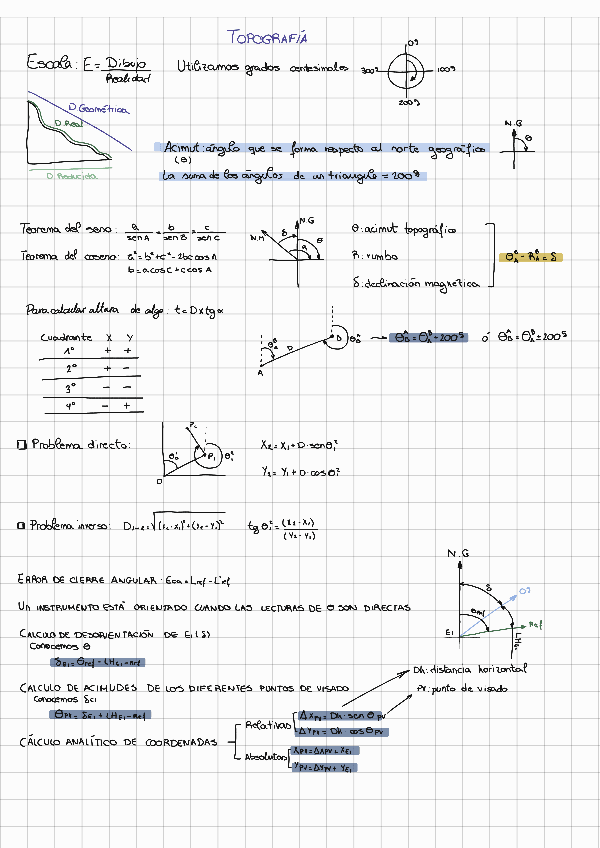 TOPOGRAFÍA
Escala: E = Dibujo / Realidad
Utilizamos grados centesimales
0g
100g
200g
300g
D Geométrica
D Real
D Reducida
Acimut: ángulo que se forma respecto al norte geográfico
(θ)
N.G
θ
La suma de los ángulos de un triangulo = 200g
Teorema del seno: a / sen A = b / sen B = c / sen C
Teorema del coseno: a² = b² + c² - 2bc cos A
b = a cos C + c cos A
N.M
N.G
δ
θ
R
θ: acimut topográfico
R: rumbo
δ: declinación magnetica
θ_A^B - R_A^B = δ
Para calcular altura de algo: t = D x tg α
Cuadrante X Y
1º + +
2º + -
3º - -
4º - +
A
θ_A^B
D
D
θ_B^A
θ_B^A = θ_A^B - 200g ó θ_B^A = θ_A^B ± 200g
Problema directo:
P₁
O
X₂ = X₁ + D · sen θ₁²
Y₂ = Y₁ + D · cos θ₁²
Problema inverso: D₁₋₂ = √(x₂ - x₁)² + (y₂ - y₁)²
tg θ₁² = (X₂ - X₁) / (Y₂ - Y₁)
ERROR DE CIERRE ANGULAR: Eca = Lref - L'ref
UN INSTRUMENTO ESTÁ ORIENTADO CUANDO LAS LECTURAS DE θ SON DIRECTAS
CALCULO DE DESORIENTACIÓN DE E₁ (δ)
Conocemos θ
δE₁ = θref - LH E₁-ref
N.G
δ
0g
θref
Ref
E₁
CALCULO DE ACIMUDES DE LOS DIFERENTES PUNTOS DE VISADO
Conocemos δE₁
θPV = δE₁ + LH E₁-ref
Dh: distancia horizontal
PV: punto de visado
CÁLCULO ANALÍTICO DE COORDENADAS
Relativas
ΔXPV = Dh · sen θPV
ΔYPV = Dh · cos θPV
Absolutas
XPV = ΔXPV + XE₁
YPV = ΔYPV + YE₁